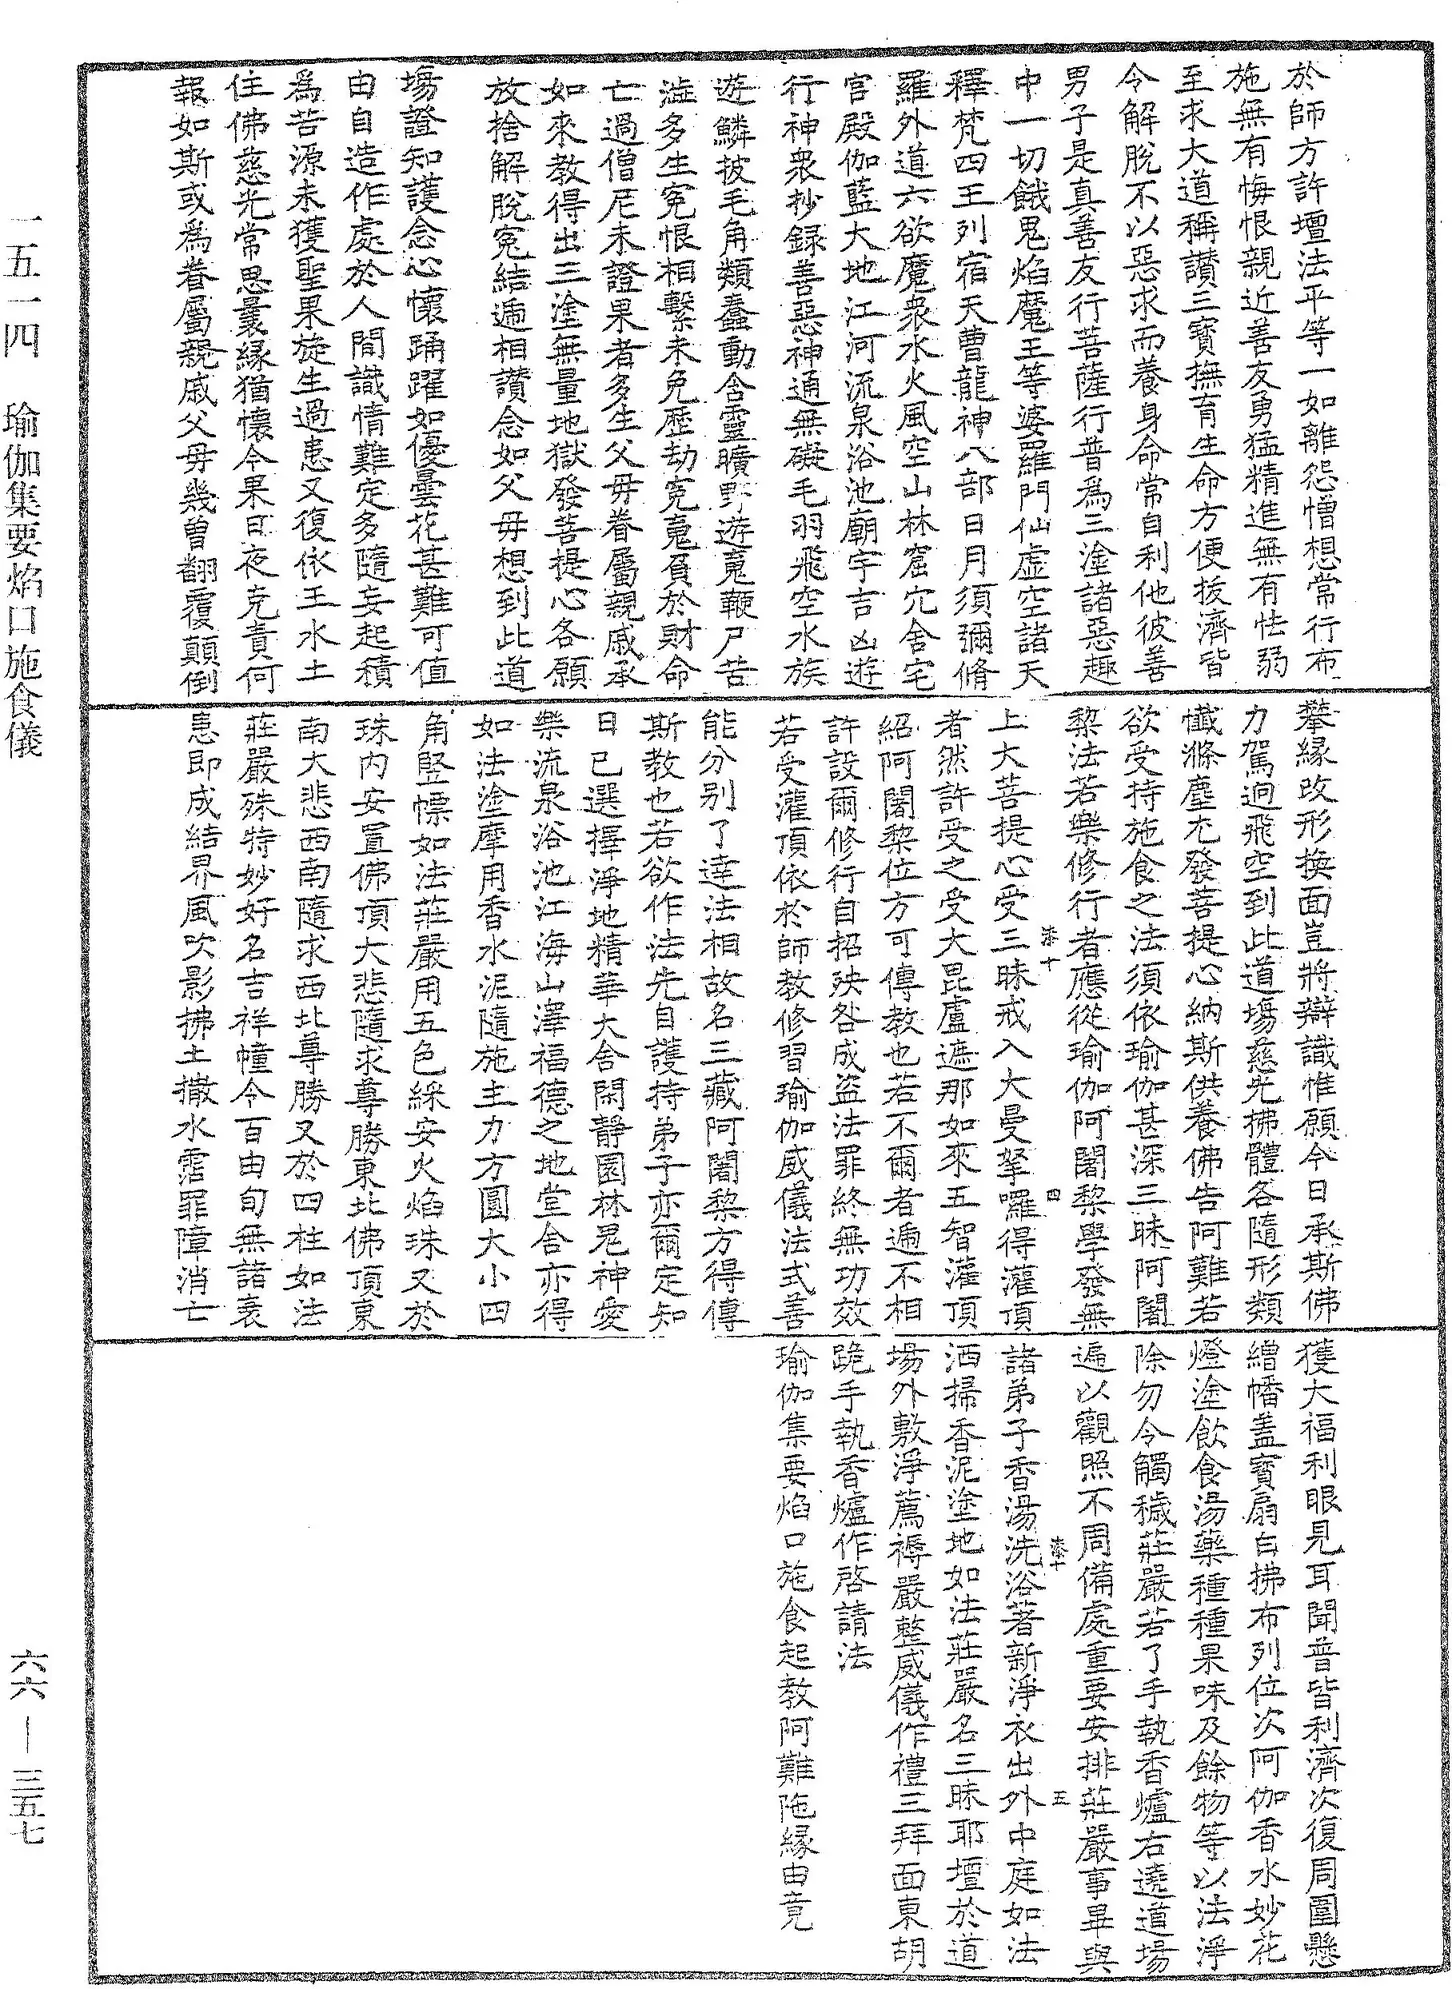 於師方許壇法平等一如離怨憎想常行布
施無有悔恨親近善友勇猛精進無有怯弱
至求大道稱讚三寶撫育生命方便拔濟皆
令解脫不以惡求而養身命常自利他彼善
男子是真善友行菩薩行普為三塗諸惡趣
中一切餓鬼焰魔王等婆羅門仙虛空諸天
釋梵四王列宿天曹龍神八部日月須彌脩
羅外道六欲魔衆水火風空山林窟穴舍宅
宮殿伽藍大地江河流泉浴池廟宇吉凶遊
行神衆抄録善惡神通無礙毛羽飛空水族
遊鱗披毛角類蠢動含靈曠野遊䰟鞭尸苦
澁多生冤恨相繫未免歷劫冤䰟負於財命
亡過僧尼未證果者多生父毋眷屬親戚承
如來教得出三塗無量地獄發菩提心各願
放捨解脫冤結遞相讚念如父毋想到此道
場證知護念心懷踊躍如優曇花甚難可值
由自造作處於人間識情難定多隨妄起積
為苦源未獲聖果旋生過患又復依王水土
住佛慈光常思曩緣猶懷今果日夜克責何
報如斯或為眷屬親戚父毋幾曽翻覆顛倒
攀緣改形換面豈將辯識惟願今日承斯佛
力駕逈飛空到此道場慈光拂體各隨形類
懺滌塵尢發菩提心納斯供養佛告阿難若
欲受持施食之法須依瑜伽甚深三昧阿闍
黎法若樂修行者應從瑜伽阿闍黎學發無
上大菩提心受三昧戒入大曼拏囉得灌頂
者然許受之受大毘盧遮那如來五智灌頂
紹阿闍黎位方可傳教也若不爾者遞不相
許設爾修行自招殃咎成盜法罪終無功效
若受灌頂依於師教修習瑜伽威儀法式善
能分別了達法相故名三藏阿闍黎方得傳
斯教也若欲作法先自護持弟子亦爾定知
日已選擇淨地精華大舍閑靜園林鬼神愛
樂流泉浴池江海山澤福德之地堂舍亦得
如法塗摩用香水泥隨施主力方圓大小四
角竪幖如法莊嚴用五色綵安火焰珠又於
珠內安置佛頂大悲隨求尊勝東北佛頂東
南大悲西南隨求西北尊勝又於四柱如法
莊嚴殊特妙好名吉祥幢令百由旬無諸衰
患即成結界風吹影拂土撒水霑罪障消亡
獲大福利眼見耳聞普皆利濟次復周圍懸
繒幡蓋寶扇白拂布列位次阿伽香水妙花
燈塗飲食湯藥種種果味及餘物等以法淨
除勿令觸穢莊嚴若了手執香爐右遶道場
遍以觀照不周備處重要安排莊嚴事畢與
諸弟子香湯洗浴著新淨衣出外中庭如法
洒掃香泥塗地如法莊嚴名三昧耶壇於道
場外敷淨薦褥嚴整威儀作禮三拜面東胡
跪手執香爐作啓請法
瑜伽集要焰口施食起教阿難陁緣由竟
一五一四　瑜伽集要焰口施食儀
六六—三五七